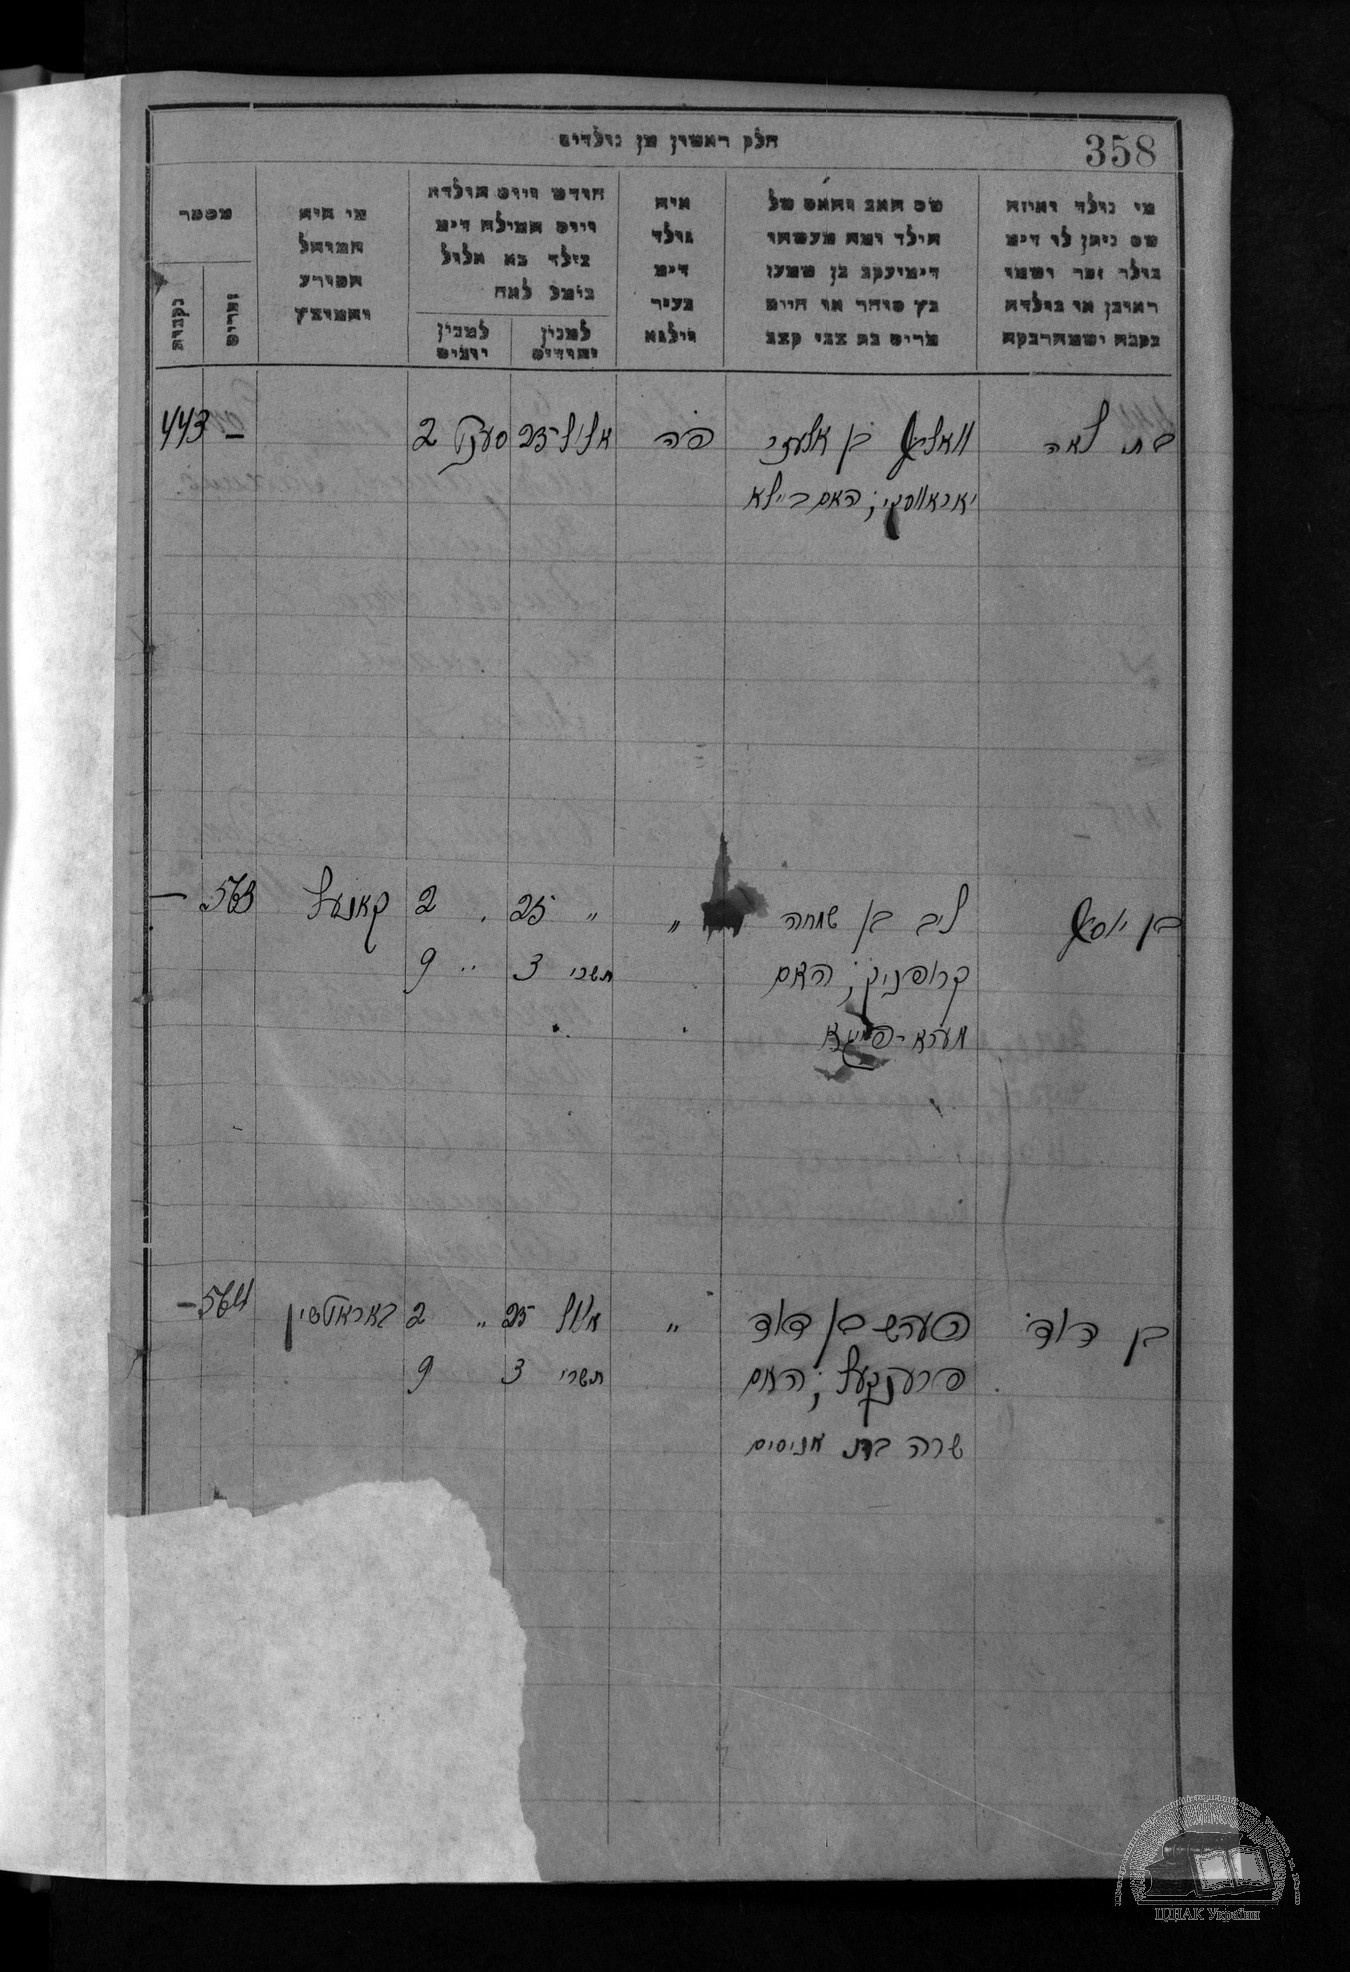 358
חלק ראשון מן נולדים
מי נולד ואיזה
שם ניתן לו דימ
נולד זכר ושמו
ראובן או נולדה
נקבה ושמה רבקה
שם האב והאם של
הילד ומה מעשהו
דימ יעקב בן שמעון
כץ סוחר או חיים
מרים בת צבי קצב
איה
נולד
דימ
בעיר
ווילנא
חודש ויום תולדה
ויום המילה דימ
נולד בא אלול
נימל לאח
למנין
יהודים
למנין
יונים
מי היה
המוהל
הפורע
והמוצץ
מספר
זכרים
נקבות
בת לאה
וואלף בן אלעזר
יאנאווסקי; האם ביילא
פה
אלול 25
סענט 2
—
443
בן יוסף
ליב בן שמחה
קרופניק; האם
מערא-פייגא
"
" 25
תשרי 3
" 2
" 9
קאנעל
563
—
בן דוד
הערש בן דוד
פרענקעל; האם
שרה בת אניסים
"
אלול 25
תשרי 3
" 2
9
564
—
ЦДІАК України